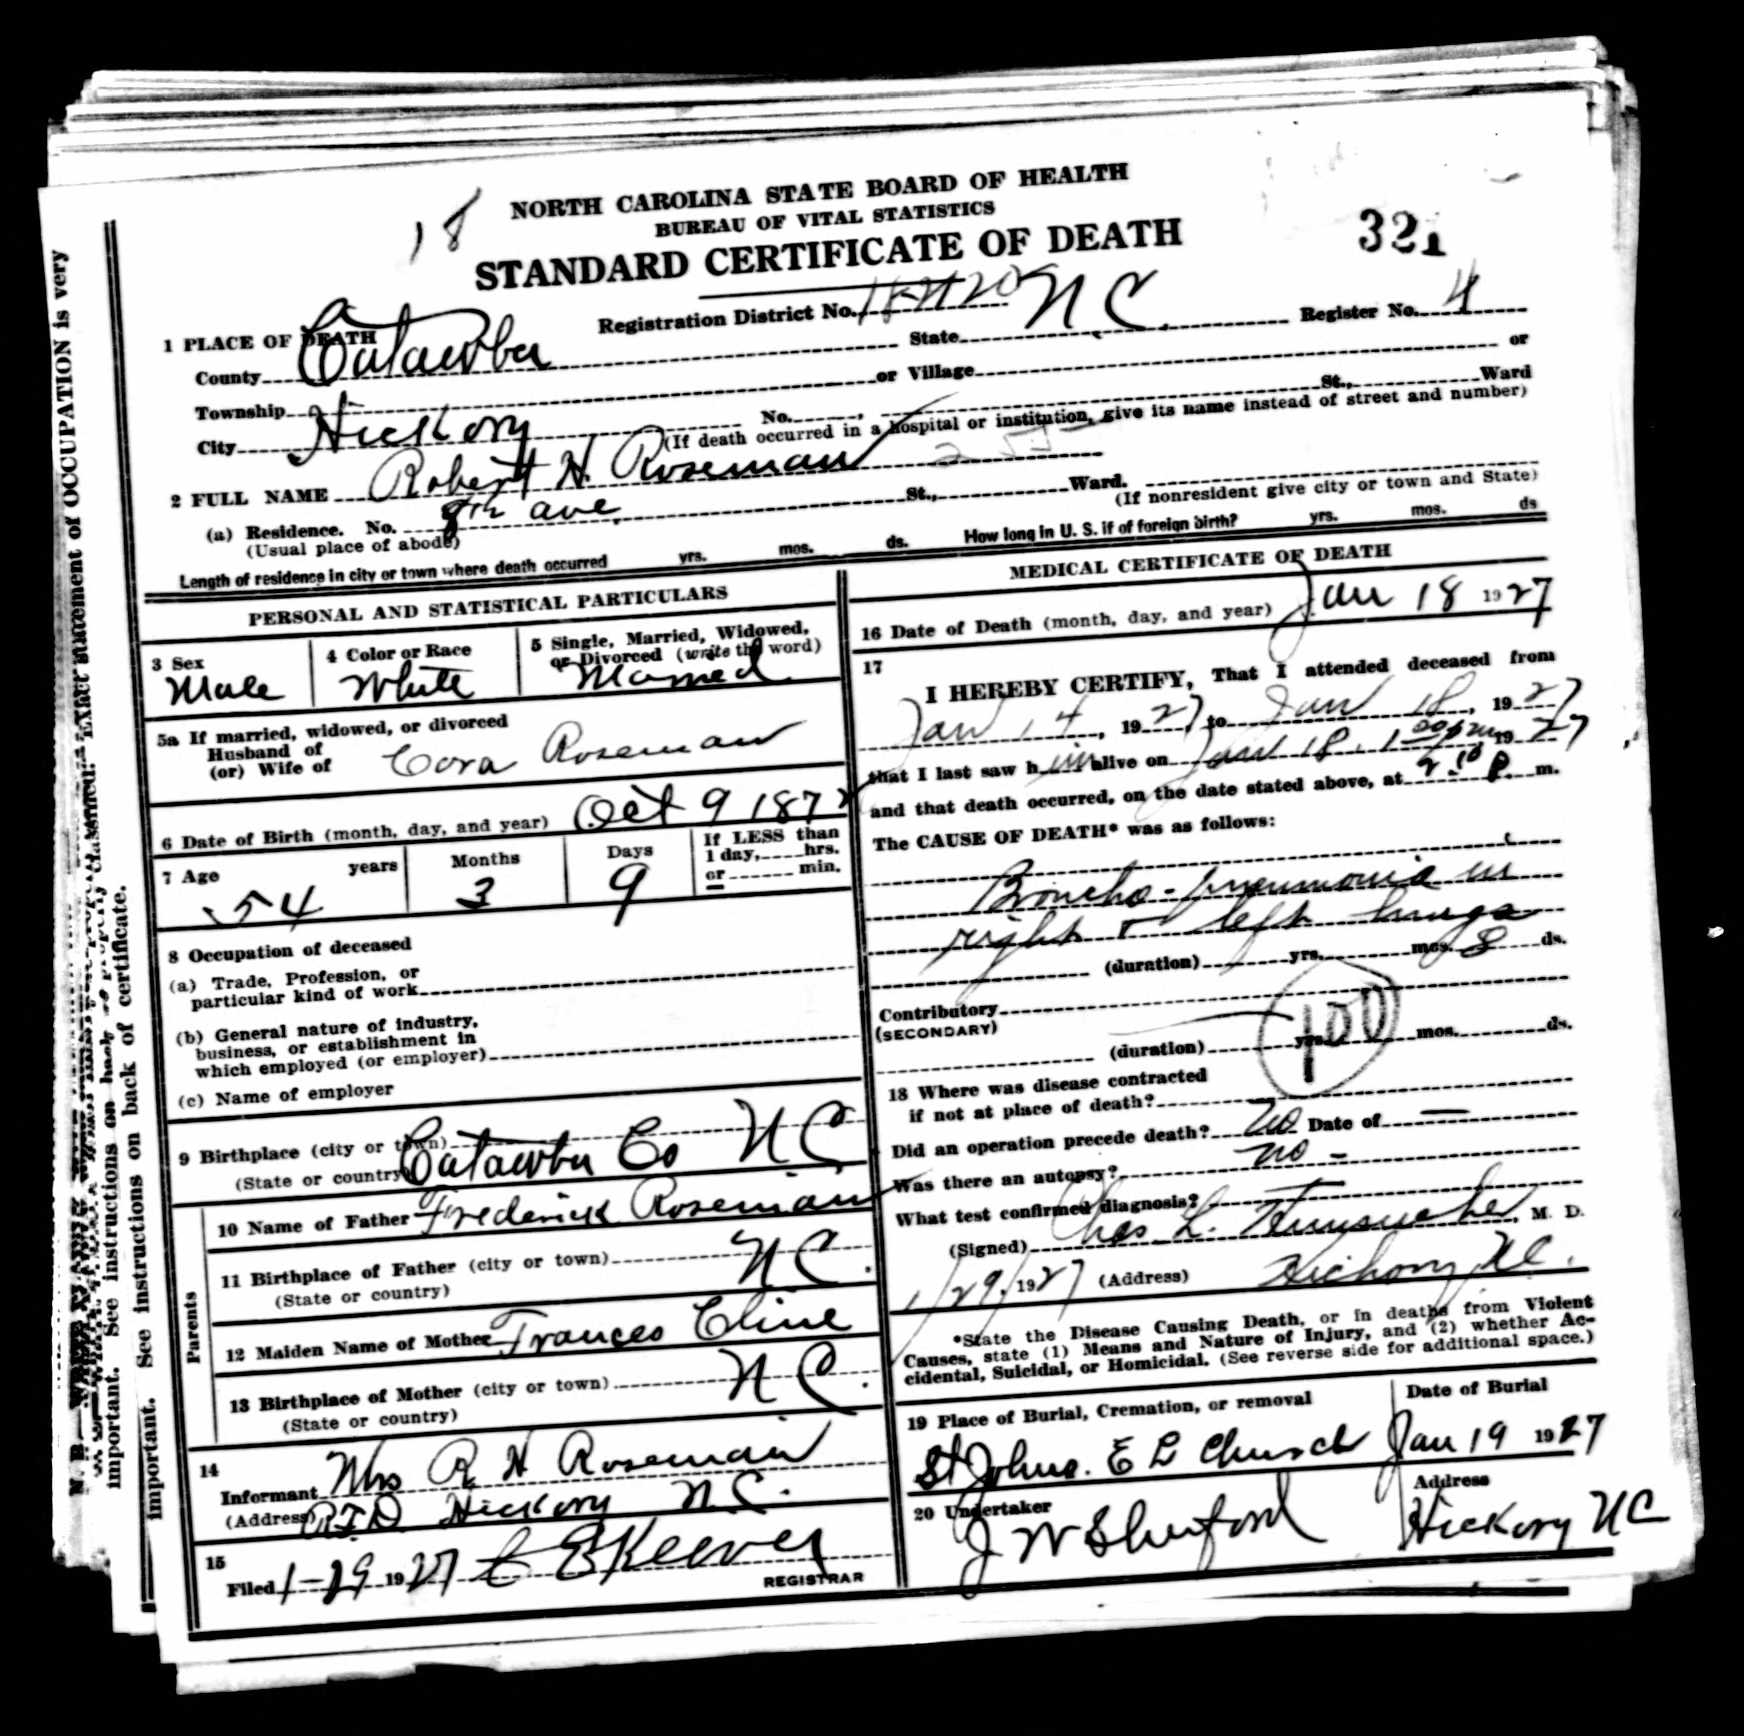 18
NORTH CAROLINA STATE BOARD OF HEALTH
BUREAU OF VITAL STATISTICS
STANDARD CERTIFICATE OF DEATH
321
1 PLACE OF DEATH
Registration District No.
Register No. 4
County Catawba State N C
Township or Village or
City Hickory No. St., Ward
(If death occurred in a hospital or institution, give its name instead of street and number)
2 FULL NAME Robert H. Roseman
(a) Residence. No. 9th ave. St., Ward.
(Usual place of abode) (If nonresident give city or town and State)
Length of residence in city or town where death occurred yrs. mos. ds. How long in U. S. if of foreign birth? yrs. mos. ds
PERSONAL AND STATISTICAL PARTICULARS
3 Sex
Male
4 Color or Race
White
5 Single, Married, Widowed,
or Divorced (write the word)
Married
5a If married, widowed, or divorced
Husband of
(or) Wife of
Cora Roseman
6 Date of Birth (month, day, and year) Oct 9 1872
7 Age years Months Days
54 3 9
If LESS than
1 day, hrs.
or min.
8 Occupation of deceased
(a) Trade, Profession, or
particular kind of work
(b) General nature of industry,
business, or establishment in
which employed (or employer)
(c) Name of employer
9 Birthplace (city or town)
(State or country) Catawba Co N C
Parents
10 Name of Father Frederick Roseman
11 Birthplace of Father (city or town) N C.
(State or country)
12 Maiden Name of Mother Frances Cline
13 Birthplace of Mother (city or town) N C.
(State or country)
14
Informant Mrs R H Roseman
(Address) R.F.D Hickory N.C.
15
Filed 1-29 1927 C E Keever
REGISTRAR
MEDICAL CERTIFICATE OF DEATH
16 Date of Death (month, day, and year) Jan 18 1927
17
I HEREBY CERTIFY, That I attended deceased from
Jan 14, 1927 to Jan 18, 1927
that I last saw him alive on Jan 18, 1 00 pm 1927
and that death occurred, on the date stated above, at 2.10 P. m.
The CAUSE OF DEATH* was as follows:
Broncho-pneumonia in
right & left lungs
(duration) yrs. mos. 8 ds.
Contributory
(SECONDARY)
100
(duration) yrs. mos. ds.
18 Where was disease contracted
if not at place of death?
Did an operation precede death? No Date of —
Was there an autopsy? No -
What test confirmed diagnosis?
(Signed) Chas L. Hunsucker, M. D.
1/29, 1927 (Address) Hickory N.C.
*State the Disease Causing Death, or in deaths from Violent
Causes, state (1) Means and Nature of Injury, and (2) whether Ac-
cidental, Suicidal, or Homicidal. (See reverse side for additional space.)
19 Place of Burial, Cremation, or removal
St Johns. E L Church
Date of Burial
Jan 19 1927
20 Undertaker
J W Shuford
Address
Hickory N C
important. See instructions on back of certificate.